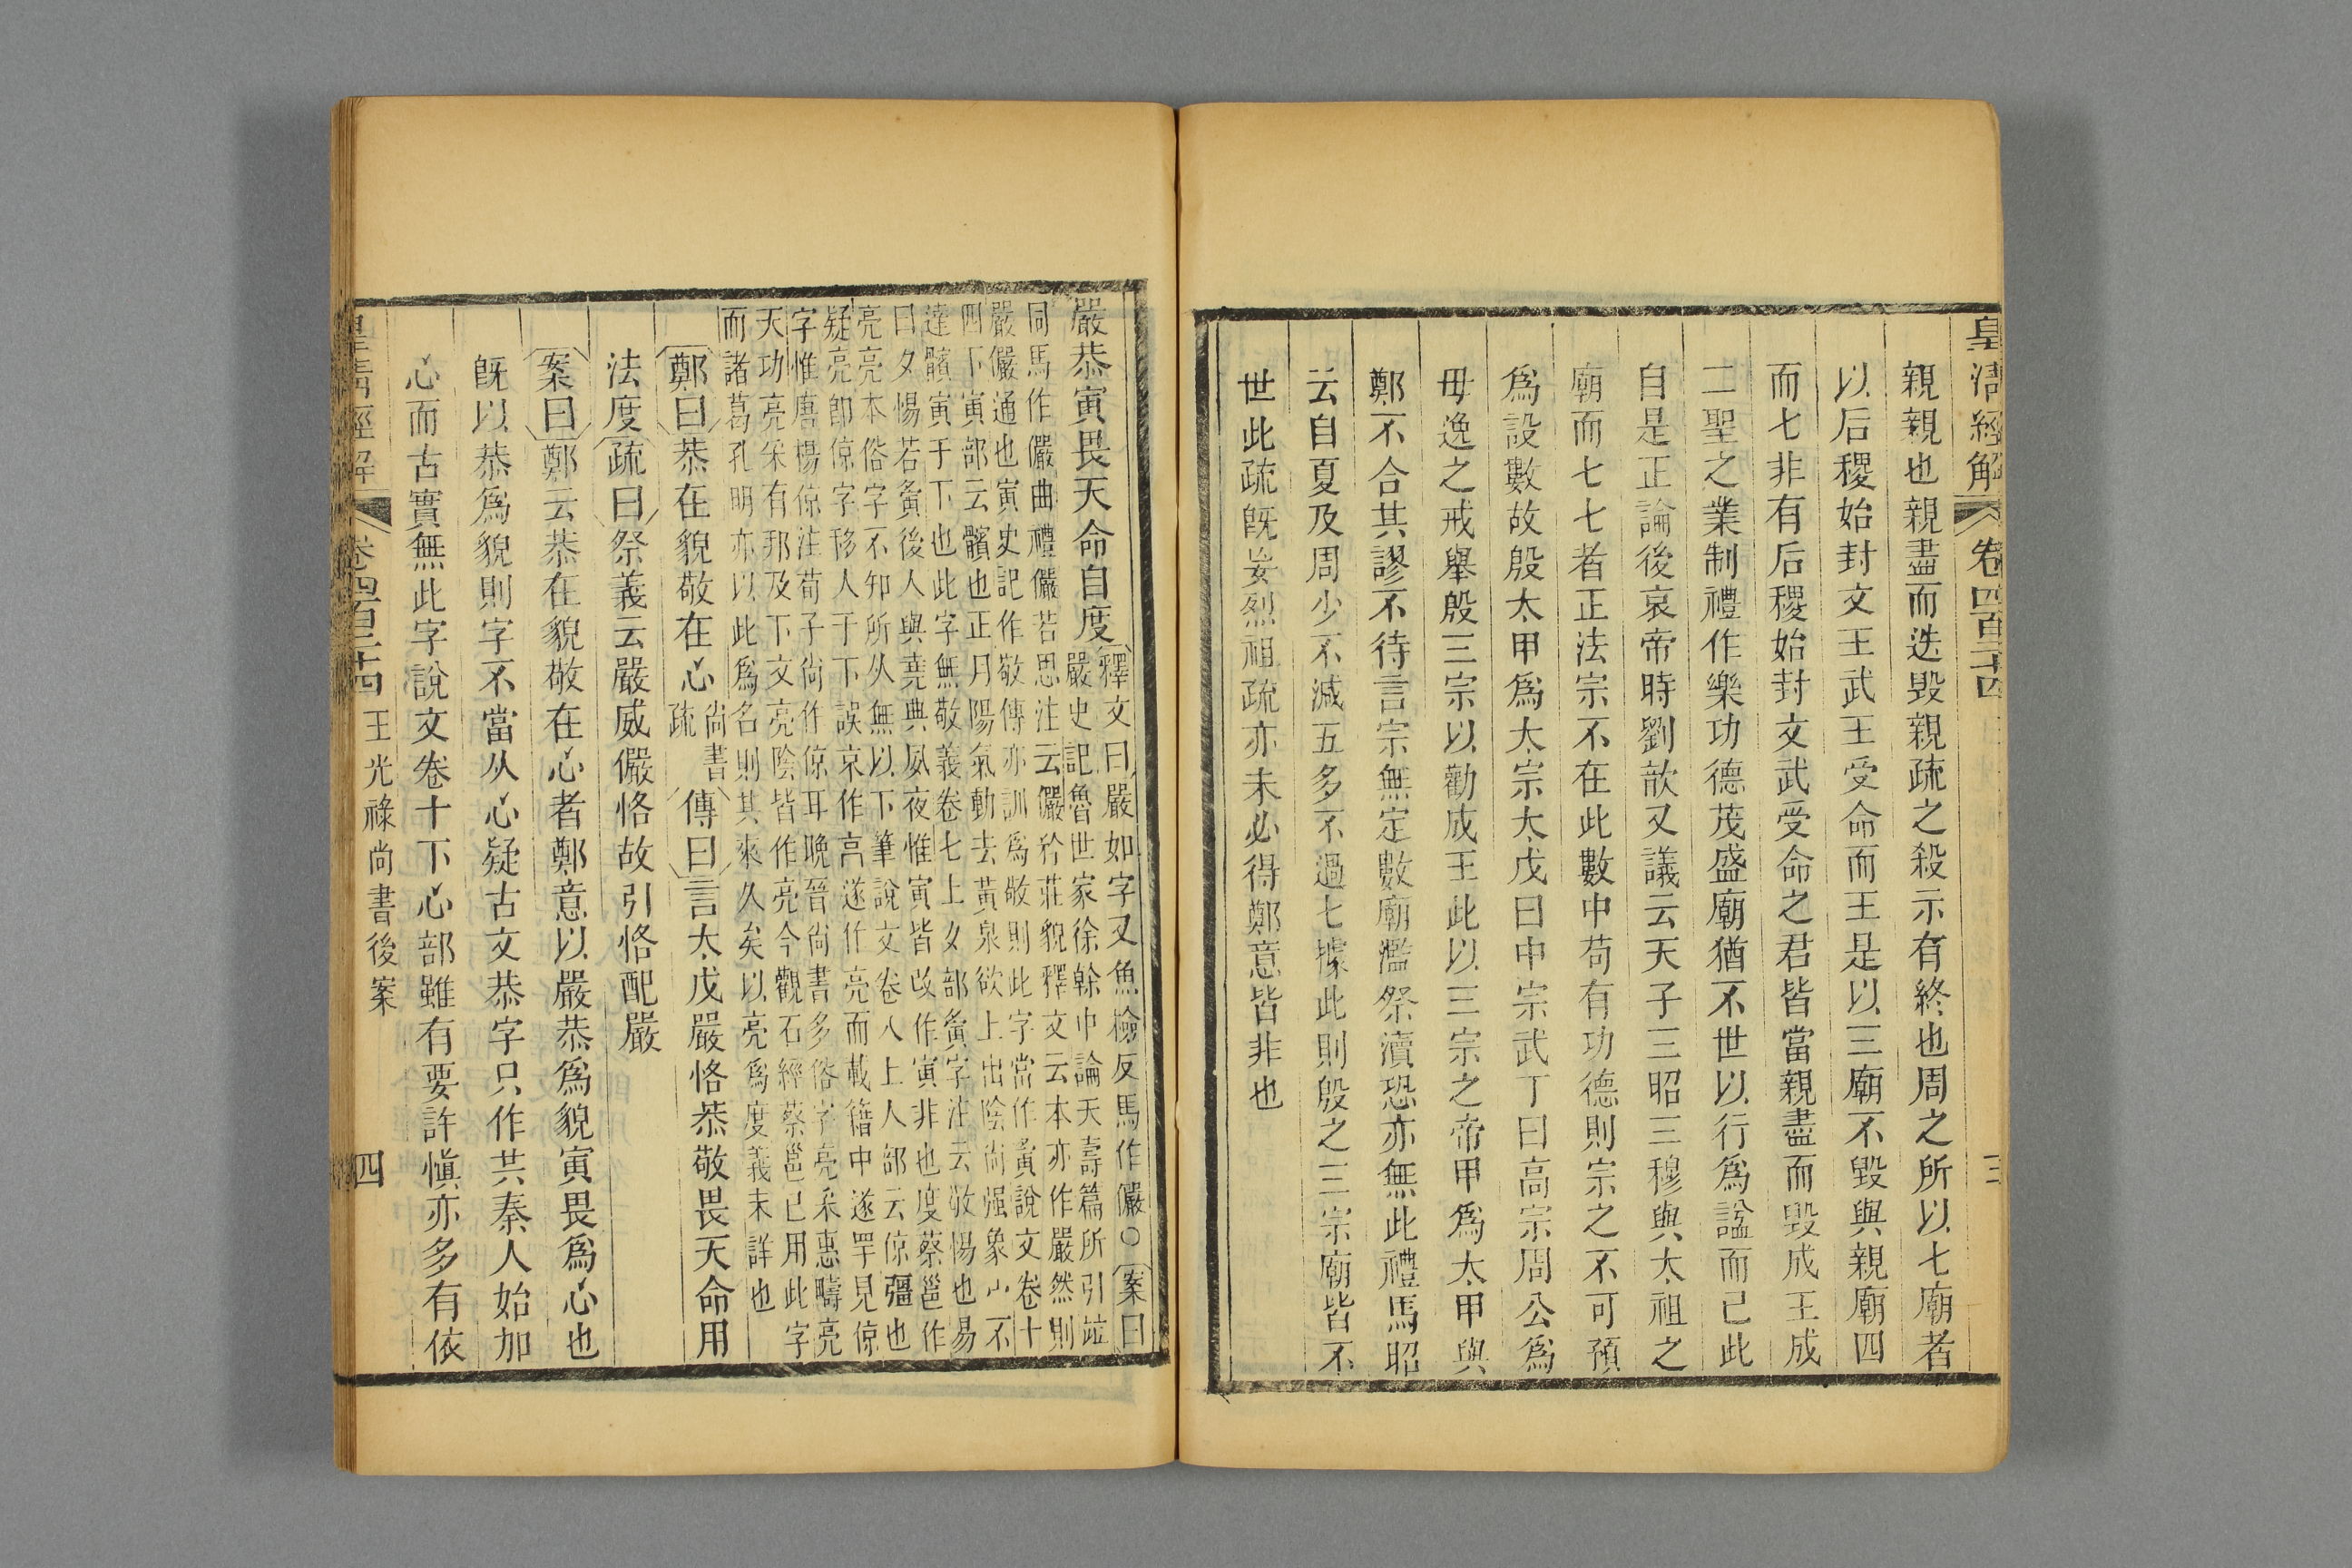 皇清經解 卷四百二十四 三
親親也親盡而迭毀親疏之殺示有終也周之所以七廟者
以后稷始封文王武王受命而王是以三廟不毀與親廟四
而七非有后稷始封文武受命之君皆當親盡而毀成王成
二聖之業制禮作樂功德茂盛廟猶不世以行爲諡而已此
自是正論後哀帝時劉歆又議云天子三昭三穆與太祖之
廟而七七者正法宗不在此數中苟有功德則宗之不可預
爲設數故殷太甲爲太宗太戊曰中宗武丁曰高宗周公爲
毋逸之戒舉殷三宗以勸成王此以三宗之帝甲爲太甲與
鄭不合其謬不待言宗無定數廟濫祭瀆恐亦無此禮馬昭
云自夏及周少不減五多不過七據此則殷之三宗廟皆不
世此疏旣妄烈祖疏亦未必得鄭意皆非也
嚴恭寅畏天命自度
釋文曰嚴如字又魚檢反馬作儼○案曰
嚴史記魯世家徐幹中論天壽篇所引竝
同馬作儼曲禮儼若思注云儼矜莊貌釋文云本亦作嚴然則
嚴儼通也寅史記作敬傳亦訓爲敬則此字當作夤說文卷十
四下寅部云髕也正月陽氣動去黃泉欲上出陰尙强象宀不
達髕寅于下也此字無敬義卷七上夕部夤字注云敬惕也易
曰夕惕若夤後人與堯典夙夜惟寅皆改作寅非也度蔡邕作
亮亮本俗字不知所从無以下筆說文卷八上人部云倞彊也
疑亮卽倞字移人于下誤京作高遂作亮而載籍中遂罕見倞
字惟唐楊倞注荀子尙作倞耳晩晉尙書多俗字亮采惠疇亮
天功亮采有邦及下文亮陰皆作亮今觀石經蔡邕已用此字
而諸葛孔明亦以此爲名則其來久矣以亮爲度義未詳也
鄭曰恭在貌敬在心尙書疏傳曰言太戊嚴恪恭敬畏天命用
法度疏曰祭義云嚴威儼恪故引恪配嚴
案曰鄭云恭在貌敬在心者鄭意以嚴恭爲貌寅畏爲心也
旣以恭爲貌則字不當从心疑古文恭字只作共秦人始加
心而古實無此字說文卷十下心部雖有要許愼亦多有依
皇清經解 卷四百二十四 王光祿尙書後案 四